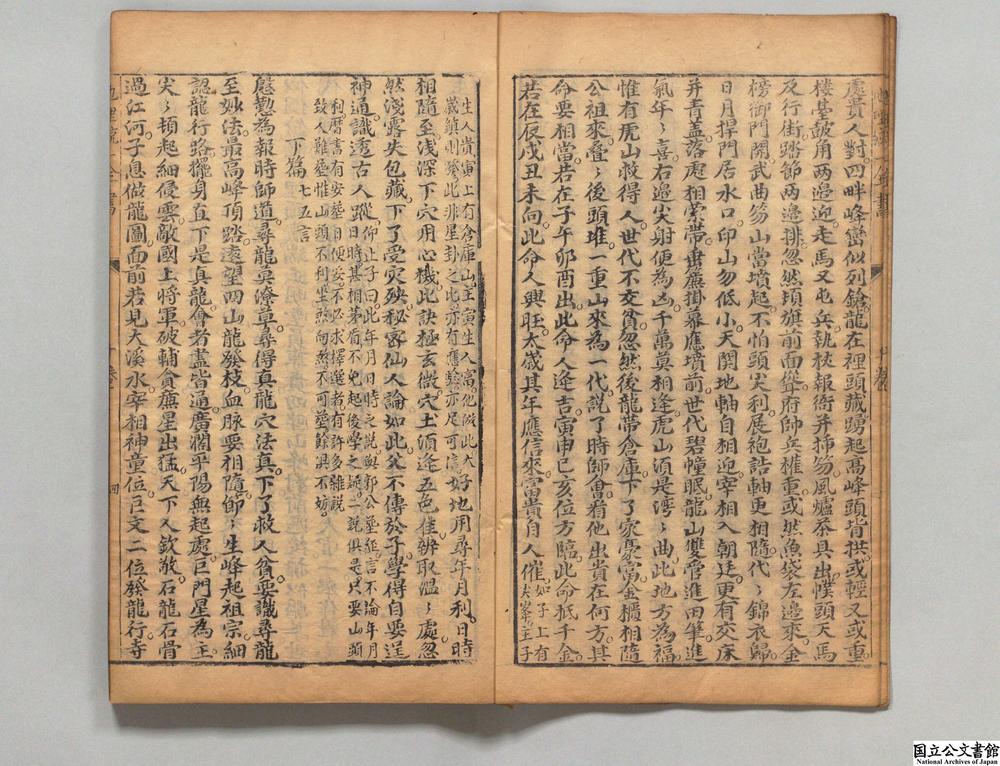 處貴人對四畔峰巒似列鎗龍在裡頭藏踴起萬峰頭皆拱或輕又或重
樓臺皷角兩邊迎走馬又屯兵執杖報衙并揷笏風爐茶具出幞頭天馬
及行街踏節兩邊排忽然頓旗前面聳府帥兵權重或然魚袋左邊來金
榜御門開武曲笏山當墳起不怕頭尖利展袍誥軸更相隨代〻錦衣歸
日月捍門居水口印山勿低小天関地軸自相迎宰相入朝廷更有交床
并青盖落處相縈帶垂簾掛募應墳前世代碧幢眠龍山雙管進田筆進
氣年〻喜右邊尖射便為凶千萬莫相逢虎山須是灣〻曲此地方為福
惟有虎山救得人世代不交貧忽然後龍帶倉庫下了家豪富金櫃相隨
公祖來叠〻後頭堆一重山來為一代說了時師會看他出貴在何方其
命要相當若在子午卯酉出此命人逢吉寅申巳亥位方臨此命秖千金
若在辰戌丑未向此命人興旺太歲其年應信來富貴自人催
如子上有
尖峯主子
生人貴寅上有倉庫山主寅生人富他倣此大
歲鎮則發此非星卦之此亦有應驗亦足可信
好地用尋年月利日時
相隨至淺深下穴用心機此訣極玄微穴土須逢五色佳辦取溫〻處忽
然淺露失包藏下了受灾殃秘客仙人論如此父不傳於子學得自要逞
神通識透古人蹤
仰止子曰此年月日時之說與郭公塟經言不論年月
日時甚相茅盾不免起後學之疑一說俱是只要山頭
利曆書有安塟日便妥不必求擇選者有許多雜說
致人難塟惟山頭不利坐煞向煞不可塟餘俱不妨
下篇七五言
慇懃為報時師道尋龍莫僚草尋得真龍穴法真下了救人貧要識尋龍
至妙法最高峰頂踏遠望四山龍發枝血脉要相隨節〻生峰起祖宗細
認龍行路擺身直下是真龍會者盡皆通廣濶平陽無起處巨門星為主
尖〻頓起細侵雲敵國上將軍破輔貪廉星出猛天下人欽敬石龍石骨
過江河子息做龍圖面前若見大溪水宰相神童位巨文二位發龍行寺
四
国立公文書館
National Archives of Japan